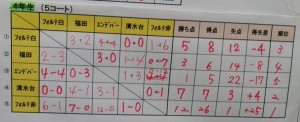 4年生 (5コート)
フォルテ白 福田 エンデバー 清水台 フォルテ赤 勝ち点 得点 失点 得失差 順位
① フォルテ白 3-2 4-4 0-0 1-6 5 8 12 -4 3
② 福田 2-3 3-0 0-7 3 6 14 -8 4
③ エンデバー 4-4 0-3 1-3 1 5 22 -17 5
④ 清水台 0-0 4-1 3-1 0-1 7 7 3 +4 2
⑤ フォルテ赤 6-1 7-0 12-0 1-0 12 26 1 +25 1